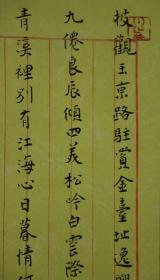 披觀玉京路駐賞金臺址逸興
九僊良辰傾四美松吟白雲際
青溪裡別有江海心日暮情何